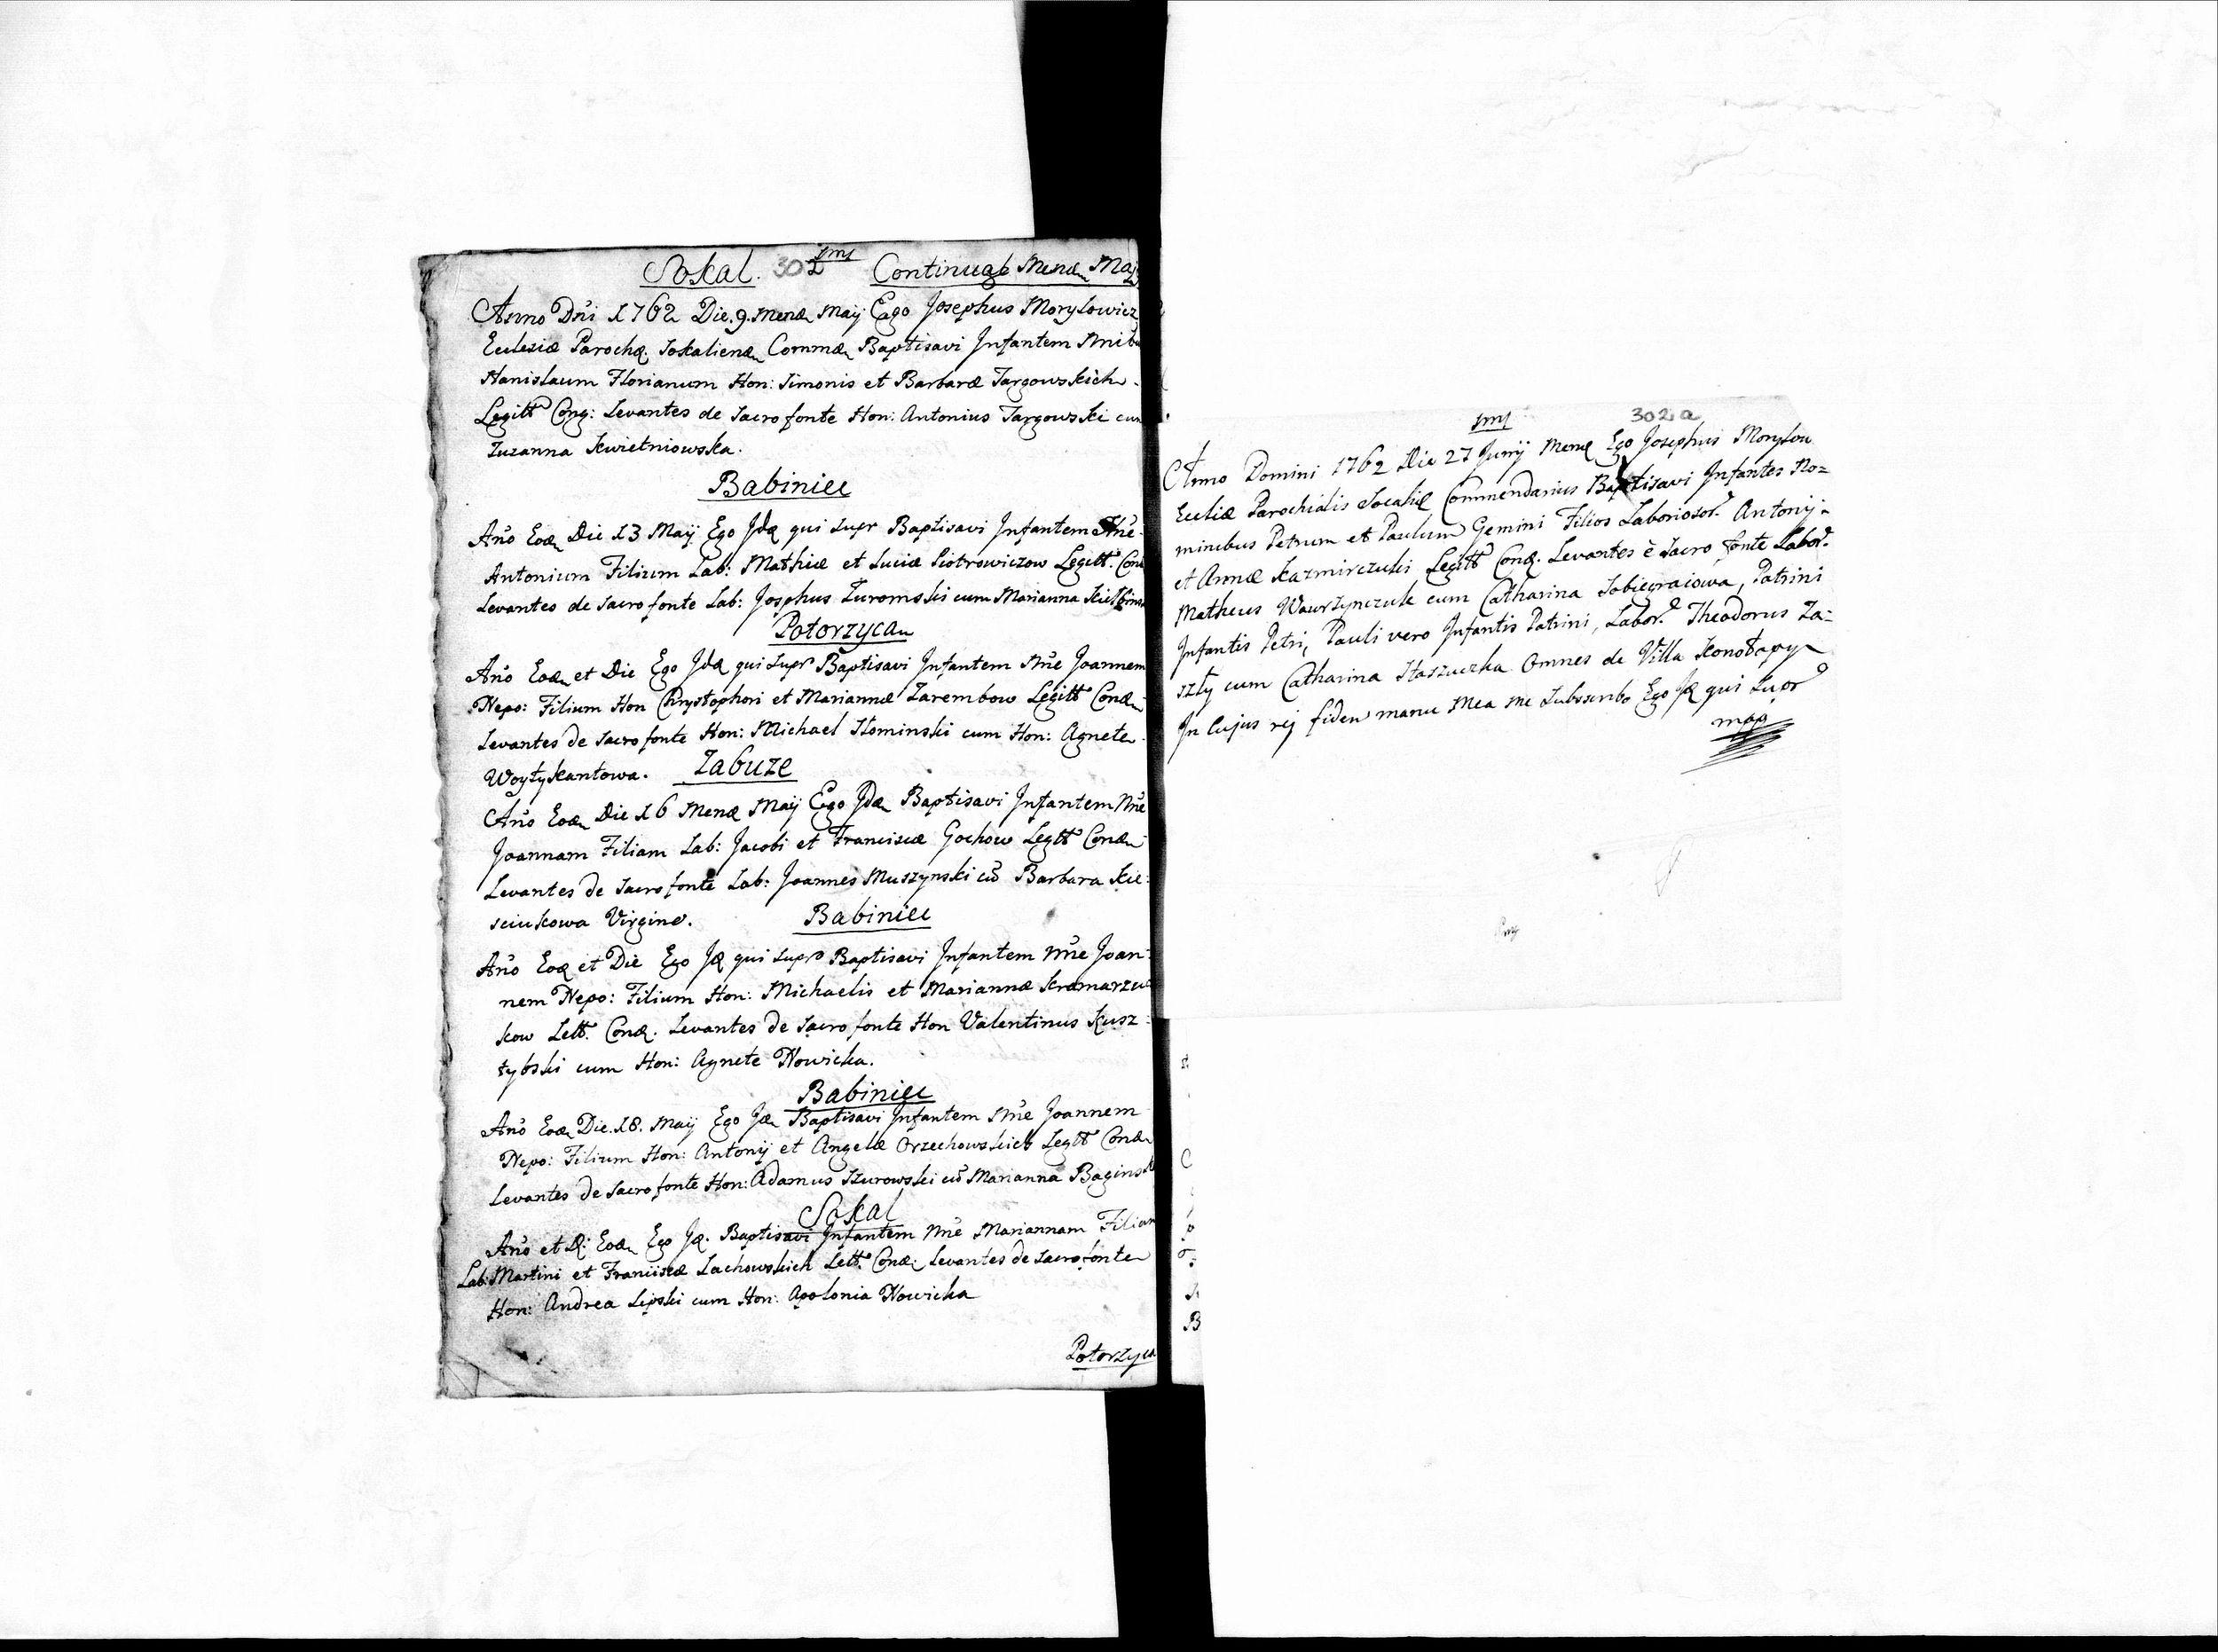 Sokal. 302 Continuat Mensis Maj
Anno Dni 1762 Die. 9. Mensis Maij Ego Josephus Morylowicz
Ecclesiæ Parochs. Sokaliens Comms Baptisavi Infantem Nnibu
Stanislaum Florianum Hon: Simonis et Barbaræ Targowskich
Legitt Cong: Levantes de Sacro fonte Hon: Antonius Targowski cum
Zuzanna Kwietniowska.
Babiniec
Año Eod Die 13 Maij Ego Jd qui supr Baptisavi Infantem Nne
Antonium Filium Lab: Mathiæ et Luciæ Piotrowiczow Legitt. Con
Levantes de Sacro fonte Lab: Josephus Zuromski cum Marianna
Potorzyca
Año Eod et Die Ego Jd qui Supr Baptisavi Infantem Nne Joannem
Nepo: Filium Hon Chrystophori et Mariannæ Zarembow Legitt Con
Levantes de Sacro fonte Hon: Michael Slominski cum Hon: Agnete
Woytykantowa. Zabuze
Año Eod Die 16 Mens Maij Ego Jd Baptisavi Infantem Nne
Joannam Filiam Lab: Jacobi et Franciscæ Gochow Legtt Con
Levantes de Sacro fonte Lab: Joannes Muszynski cū Barbara Kie:
sciukowa Virgine. Babiniec
Año Eod et Die Ego Jd qui supr Baptisavi Infantem Nne Joan:
nem Nepo: Filium Hon: Michaelis et Mariannæ Kramarzu
kow Lett. Con. Levantes de Sacro fonte Hon Valentinus Kusz:
tybski cum Hon: Agnete Nowicka.
Babiniec
Año Eod Die. 18. Maij Ego Jd Baptisavi Infantem Nne Joannem
Nepo: Filium Hon: Antonij et Angelæ Orzechowskich Legtt Con
Levantes de Sacro fonte Hon: Adamus Szurowski cū Marianna Baginsk
Sokal
Año et D: Eod Ego Jd. Baptisavi Infantem Nne Mariannam Filiam
Lab: Martini et Franciscæ Lachowskich Lett. Con: Levantes de Sacro fonte
Hon: Andrea Lipski cum Hon: Apolonia Nowicka
Potorzyca
302 a
Anno Domini 1762 Die 27 Junij Mens Ego Josephus Morylow
Eccliæ Parochialis Socalie Commendarius Baptisavi Infantes No=
minibus Petrum et Paulum Gemini Filios Laborioso. Antonij
et Annæ Kazmirczuki Legitt Con. Levantes è Sacro fonte Labor.
Matheus Wawrzynczuk cum Catharina Sobiegraiowa, Patrini
Infantis Petri, Pauli vero Infantis Patrini, Labor. Theodorus Za=
szly cum Catharina Staszuczka Omnes de Villa Konotopy
In Cujus rej fidem manu Mea me Subscribo Ego Jd qui supr
mpp